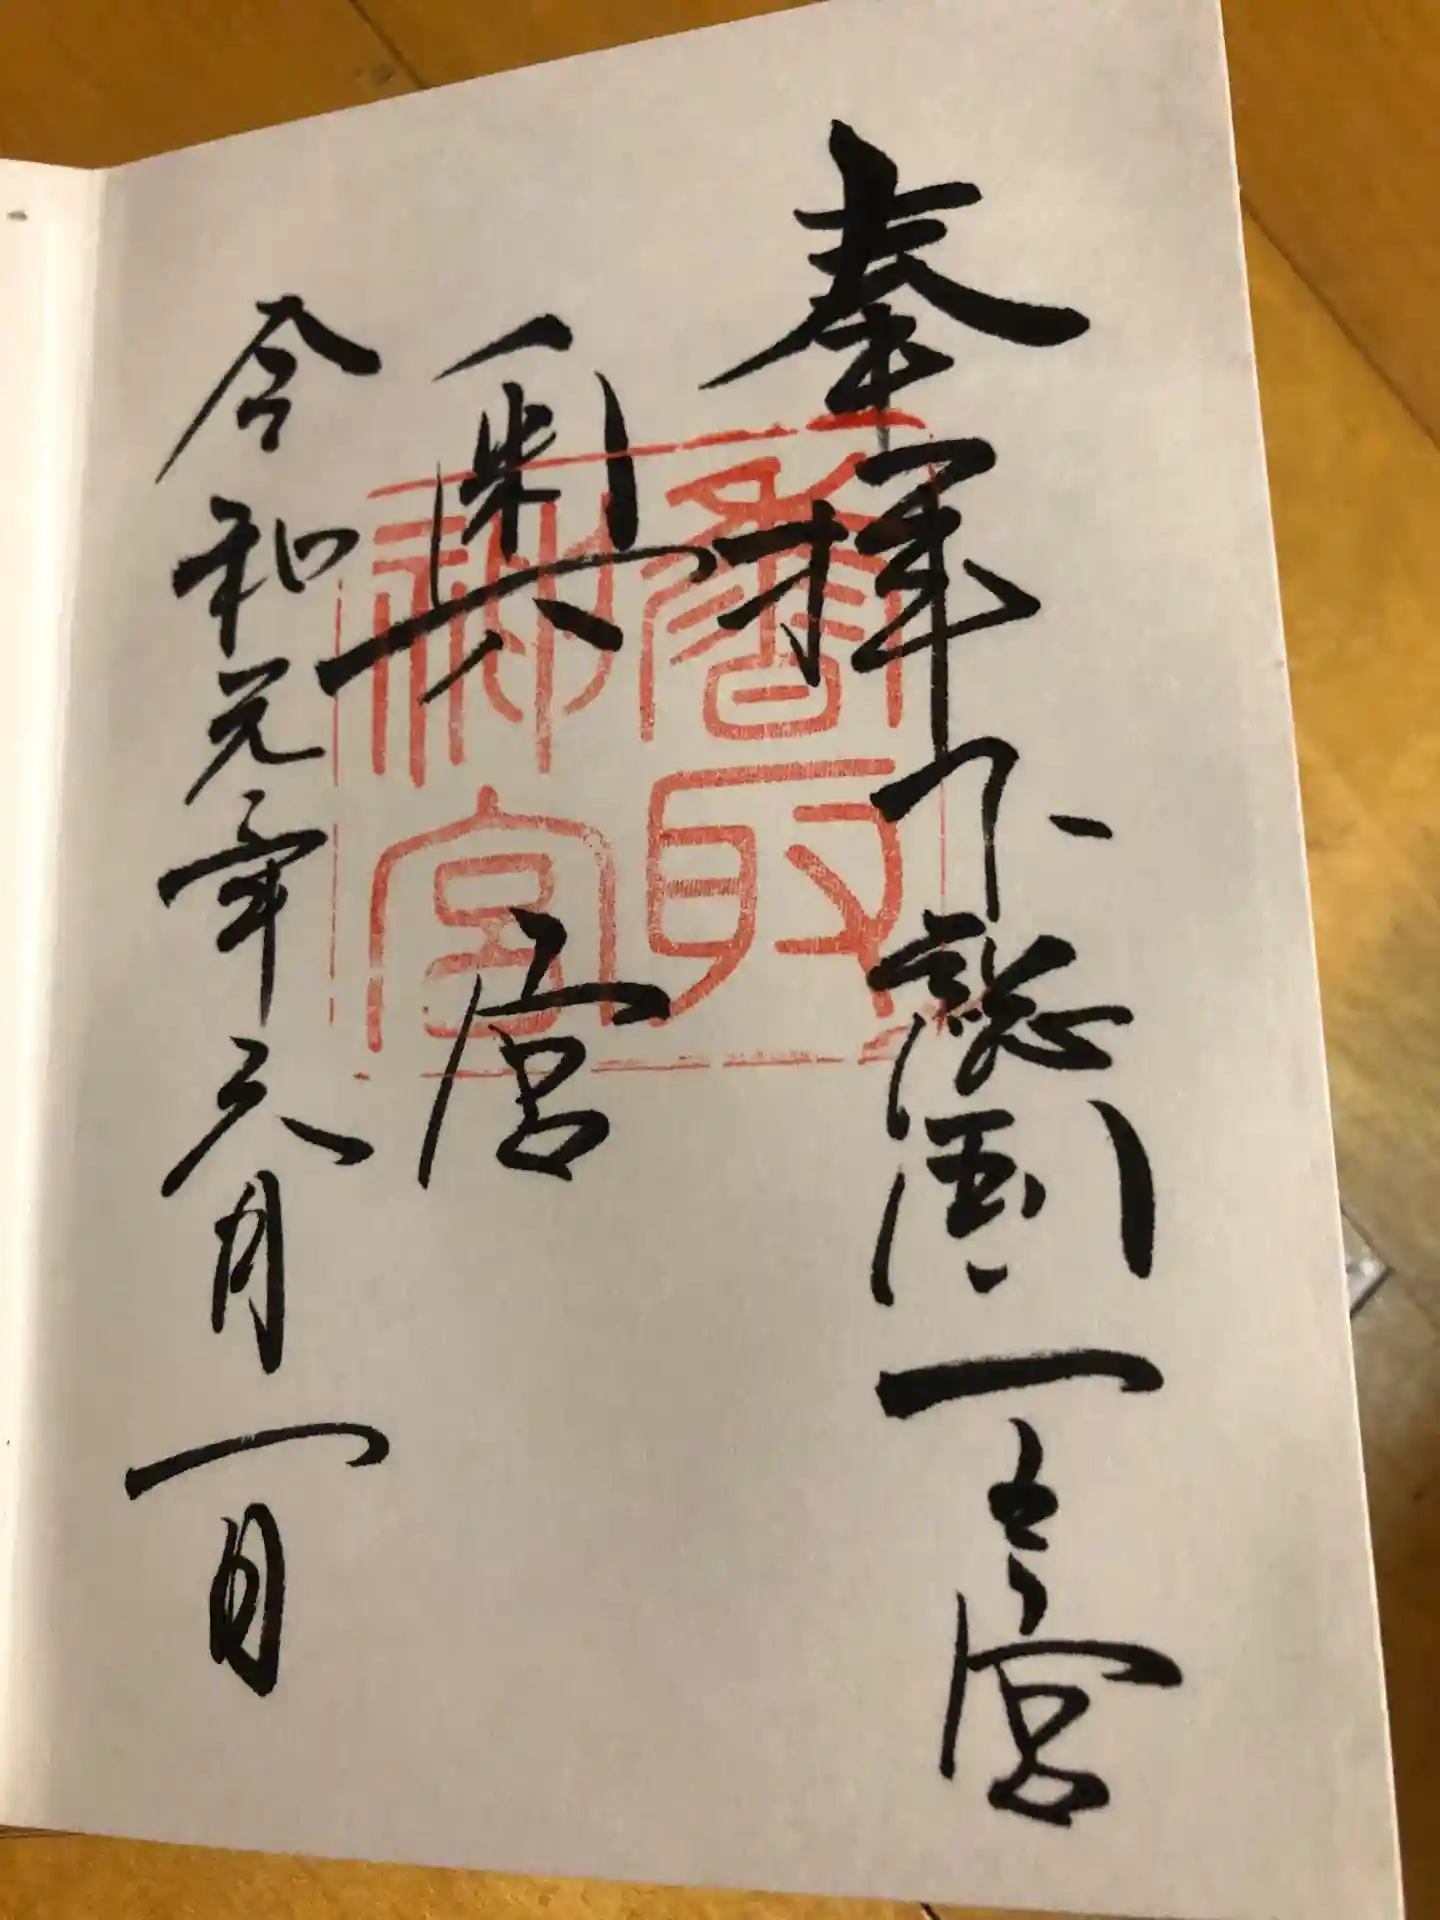 奉拝下総國一之宮
奥宮
令和元年六月一日
香取
神宮